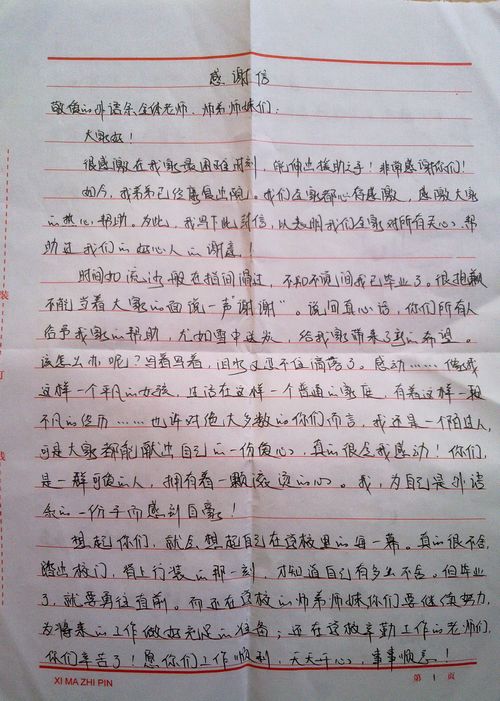 感谢信
敬爱的外语系全体老师、师弟师妹们:
大家好!
很感激在我家最困难时刻,能伸出援助之手!非常感谢你们!
如今,我弟弟已经康复出院。我们全家都心存感激,感激大家
的热心帮助。为此,我写下此封信,以表明我们全家对所有关心、帮
助过我们的好心人的谢意。
时间如流沙般在指间滑过,不知不觉间我已毕业了。很抱歉
不能当着大家的面说一声“谢谢”。说句真心话,你们所有人
给予我家的帮助,尤如雪中送炭,给我家带来了新的希望。
该怎么办呢?写着写着,泪水又要不住滴落了。感动……像我
这样一个平凡的女孩,生活在这样一个普通的家庭,有着这样一段
不凡的经历……也许对绝大多数的你们而言,我还是一个陌生人,
可是大家都能献出自己的一份爱心,真的很令我感动!你们,
是一群可爱的人,拥有着一颗滚烫的心。我,为自己是外语
系的一份子而感到自豪!
想起你们,就会想起自己在该校里的每一幕。真的很不舍,
踏出校门,背上行装的那一刻,才知道自己有多么不舍。但毕业
了,就要勇往直前。而还在该校的师弟师妹你们要继续努力,
为将来的工作做好充足的准备;还在该校辛勤工作的老师们,
你们辛苦了!愿你们工作顺利,天天开心,事事顺意!
XI MA ZHI PIN 第 1 页
装
订
线